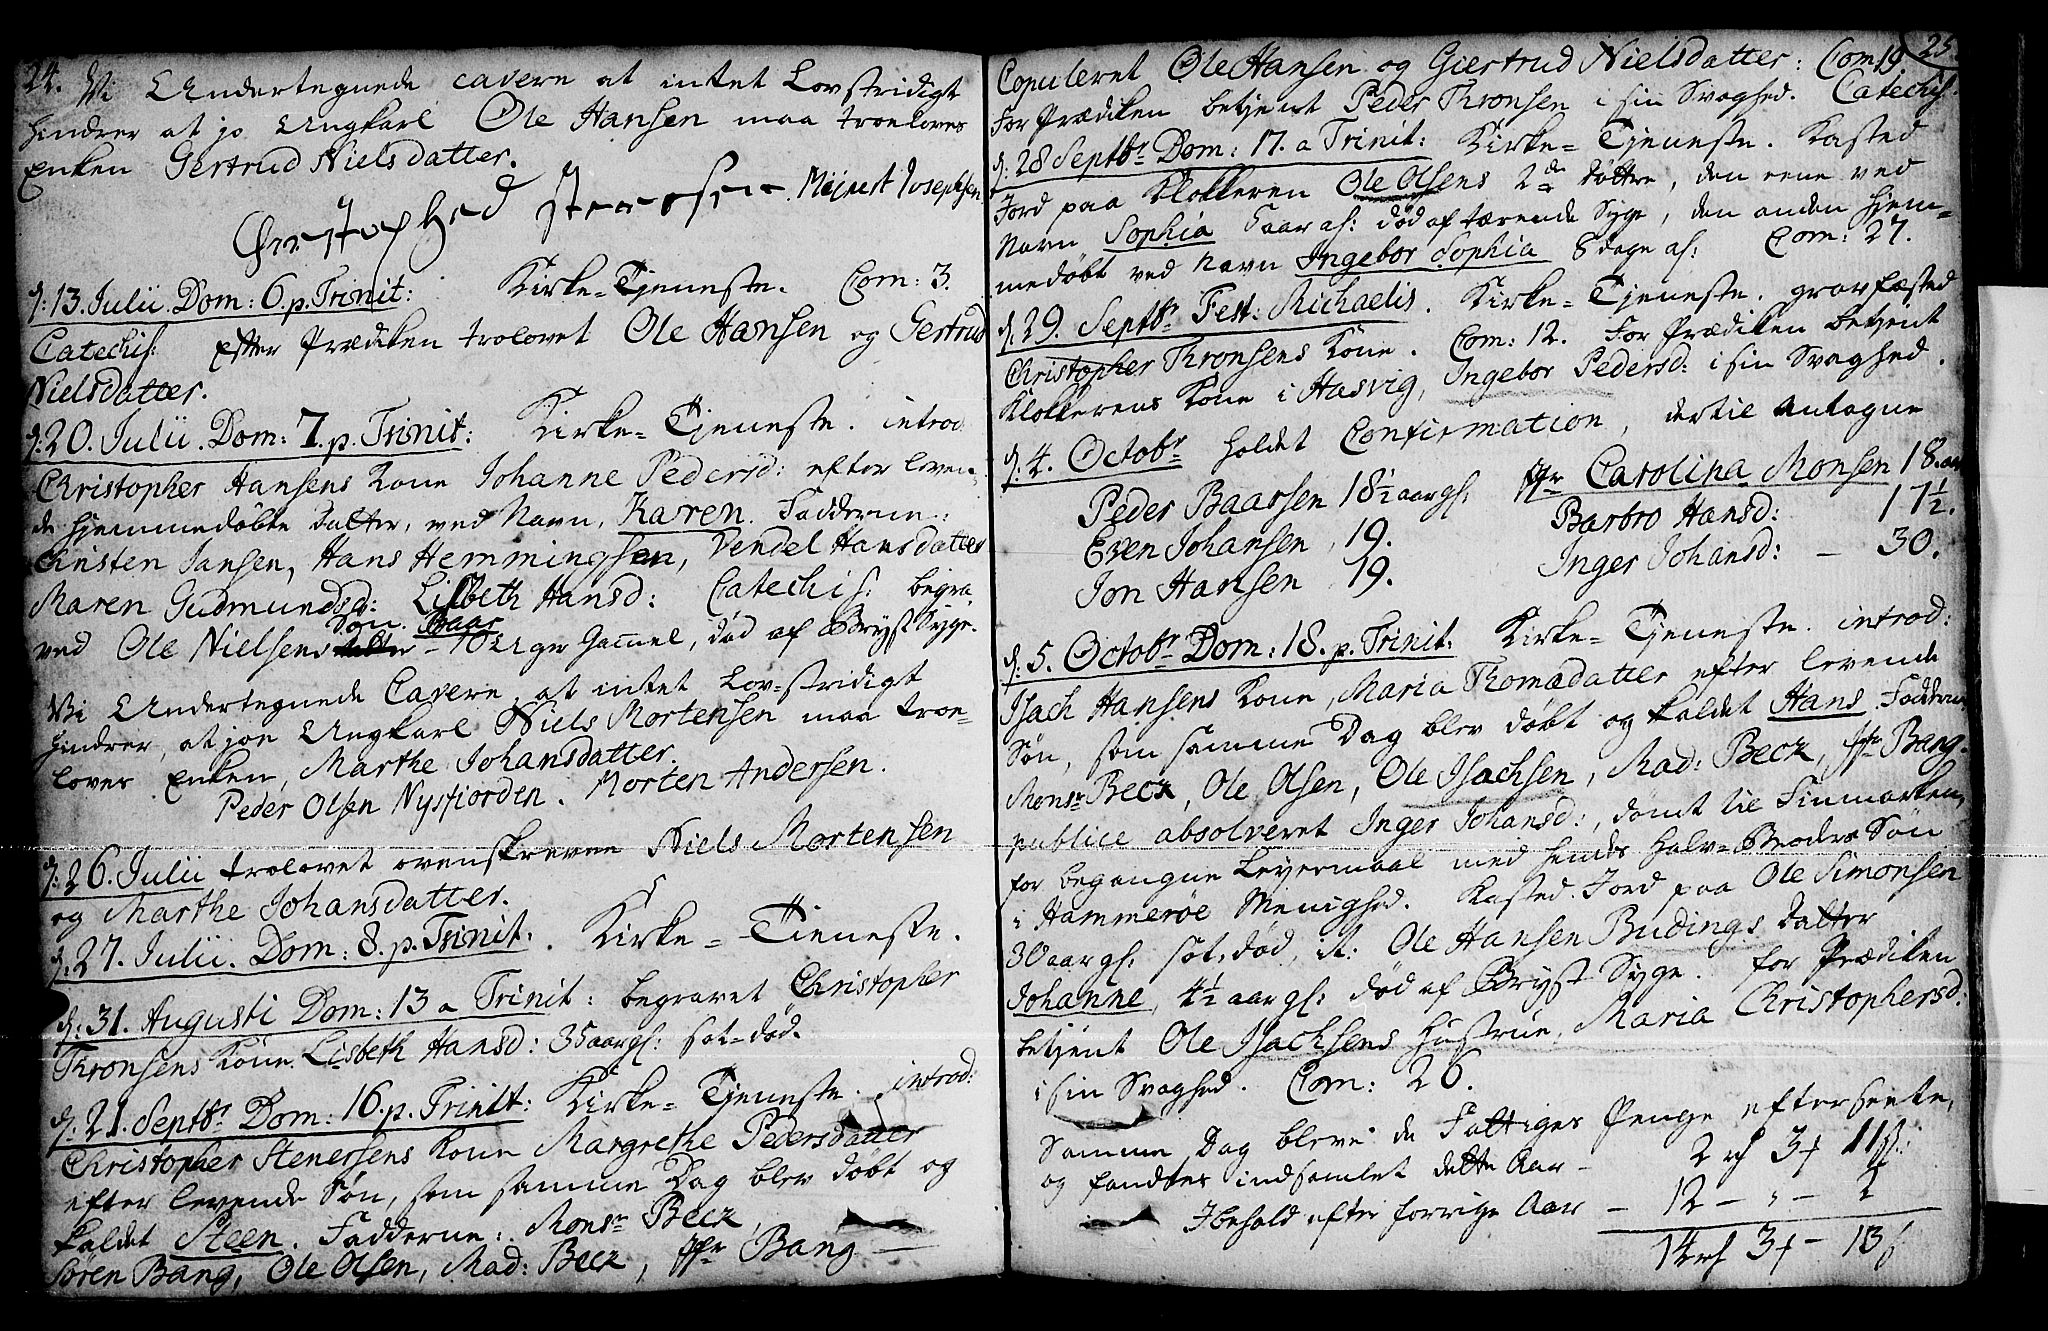 24.
Vi Undertegnede cavere at intet Lovstridigt
hindrer at jo Ungkarl Ole Hansen maa troeloves
Enken Gertrud Nielsdatter.
Christopher Stenersen. Mejnert Josephsen
d: 13. Julii. Dom: 6. p. Trinit: Kirke-Tjeneste. Com: 3.
Catechis: Efter Prædiken trolovet Ole Hansen og Gertrud
Nielsdatter.
d: 20. Julii. Dom: 7. p. Trinit: Kirke-Tjeneste. introd
Christopher Hansens Kone Johanne Pedersd: efter leven-
de hjemmedøbte Datter, ved Navn, Karen. Fadderne:
Christen Jansen, Hans Hemmingsen, Vendel Hansdatter
Maren Gudmundsd: Lisbeth Hansd: Catechis: begra
ved Ole Nielsens Søn. Baar 10 Uger Gamel, død af Bryst Syge.
Vi Undertegnede Cavere, at intet Lov-stridigt
hindrer, at jon Ungkarl Niels Mortensen maa troe-
loves Enken, Marthe Johansdatter.
Peder Olsen Nysfiorden. Morten Andersen.
d: 26. Julii trolovet ovenskrevne Niels Mortensen
og Marthe Johansdatter.
d: 27. Julii. Dom: 8. p. Trinit: Kirke-Tieneste.
d: 31. Augusti Dom: 13 a Trinit: begravet Christopher
Thronsens Kone. Lisbeth Hansd: 35 aar gl: sot-død.
d: 21. Septbr Dom: 16. p. Trinit: Kirke-Tjeneste. introd:
Christopher Stenersens Kone Margrethe Pedersdatter
efter levende Søn, som samme Dag blev døbt og
kaldet Steen. Fadderne: Monsr Beck,
Søren Bang, Ole Olsen, Mad: Beck, Jfr Bang
25.
Copuleret Ole Hansen og Giertrud Nielsdatter: Com 19
For Prædiken betjent Peder Thronsen i sin Svaghed. Catechis:
d: 28 Septbr Dom: 17. a Trinit: Kirke-Tjeneste. Kasted
Jord paa Klokkeren Ole Olsens 2de Døttre, den eene ved
Navn Sophia 5 aar al: død af tærende Syge, den anden hjem-
medøbt ved Navn Ingebor Sophia 8 dage al: Com: 27.
d: 29. Septbr Fest: Michaelis. Kirke-Tjeneste. gravfæsted
Christopher Thronsens Kone. Com: 12. For Prædiken betjent
Klokkerens Kone i Hasvig, Ingebor Pedersd: i sin Svaghed.
d: 4. Octobr holdet Confirmation, dertil Antagne
Peder Baarsen 18½ aar gl: Jfr Carolina Monsen 18. aar
Even Johansen, 19. Barbro Hansd: 17½.
Jon Hansen 19. Inger Johansd: – 30.
d: 5. Octobr Dom: 18. p. Trinit: Kirke-Tjeneste. introd:
Isach Hansens Kone, Maria Thomædatter efter levende
Søn, som samme Dag blev døbt og kaldet Hans. Fadderne
Monsr Beck, Ole Olsen, Ole Isachsen, Mad: Beck, Jfr Bang.
publice absolveret Inger Johansd:, dømt til Finmarken,
for begangne Leyermaal med hendes Halv-Broders Søn
i Hammerøe Menighed. Kasted Jord paa Ole Simonsen
30 aar gl: sot-død, it: Ole Hansen Budings Datter
Johanne, 4½ aar gl: død af Bryst Syge. for Prædiken
betjent Ole Isachsens Hustrue, Maria Christophersd:
i sin Svaghed. Com: 26.
Samme Dag bleve de Fattiges Penge efterseete,
og fandtes indsamlet dette Aar – 2 rd 3 11 s:
Jbehold efter forrige Aar – 12 – " – 2
14 rd 3 – 13 s